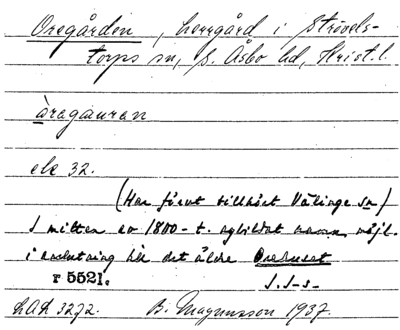 Oregården, herrgård i Strövels-
torps sn, S. Åsbo hd, Krist.l.
àragauran
ek 32.
(Har förut tillhört Välinge sn)
I mitten av 1800-t. nybildat namn, möjl.
i anslutning till det äldre
r 5521. J.S-s.
LAL 3272. B. Magnusson 1937.